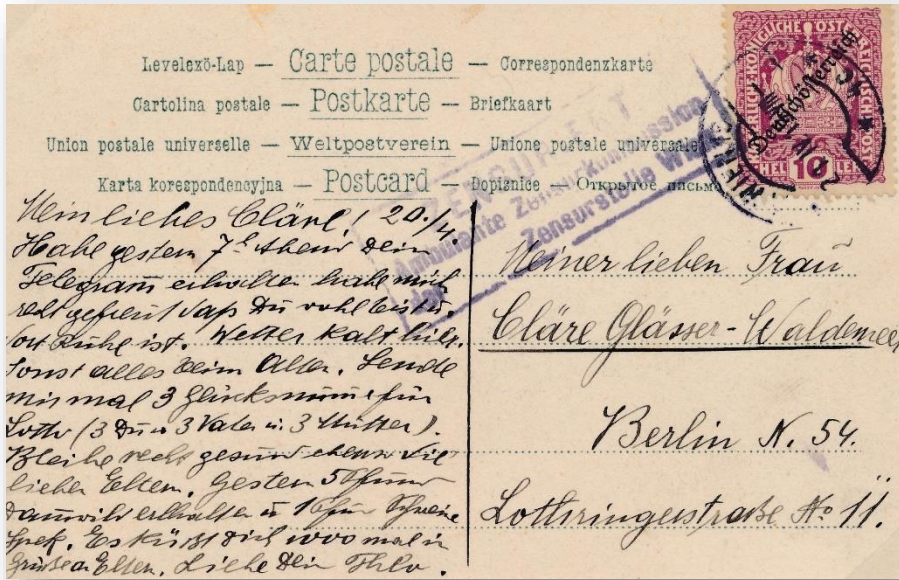 Levelexö-Lap — Carte postale — Correspondenzkarte
Cartolina postale — Postkarte — Briefkaart
Union postale universelle — Weltpostverein — Unione postale universale
Karta korespondencyjna — Postcard — Dopisnice — Открытое письмо
ZENSURIERT
Ambulante Zensurkommission
der Zensurstelle Wien
KAISERLICHE KÖNIGLICHE ÖSTERREICHISCHE POST
Deutschösterreich
HELLER 10 HELLER
WIEN
Mein liebes Cläre! 20./4.
Habe gestern 7 Abend Dein
Telegram erhalten habe mich
recht gefreut daß Du wohl bist u.
dort Ruhe ist. Wetter kalt hier.
Sonst alles beim Alten. Sende
mir mal 3 Glücksnum̅e für
Lotto (3 Du u 3 Vater u. 3 Mutter).
Bleibe recht gesund ebenso die
lieben Eltern. Gestern 5 Pfund
erhalten u 1 Pfun Schweine
Speck. Es küsst Dich 1000 mal in
Liebe Dein
Grüße a Eltern.
Meiner lieben Frau
Cläre Glässer-Waldemeer
Berlin N. 54.
Lothringerstraße No 11.